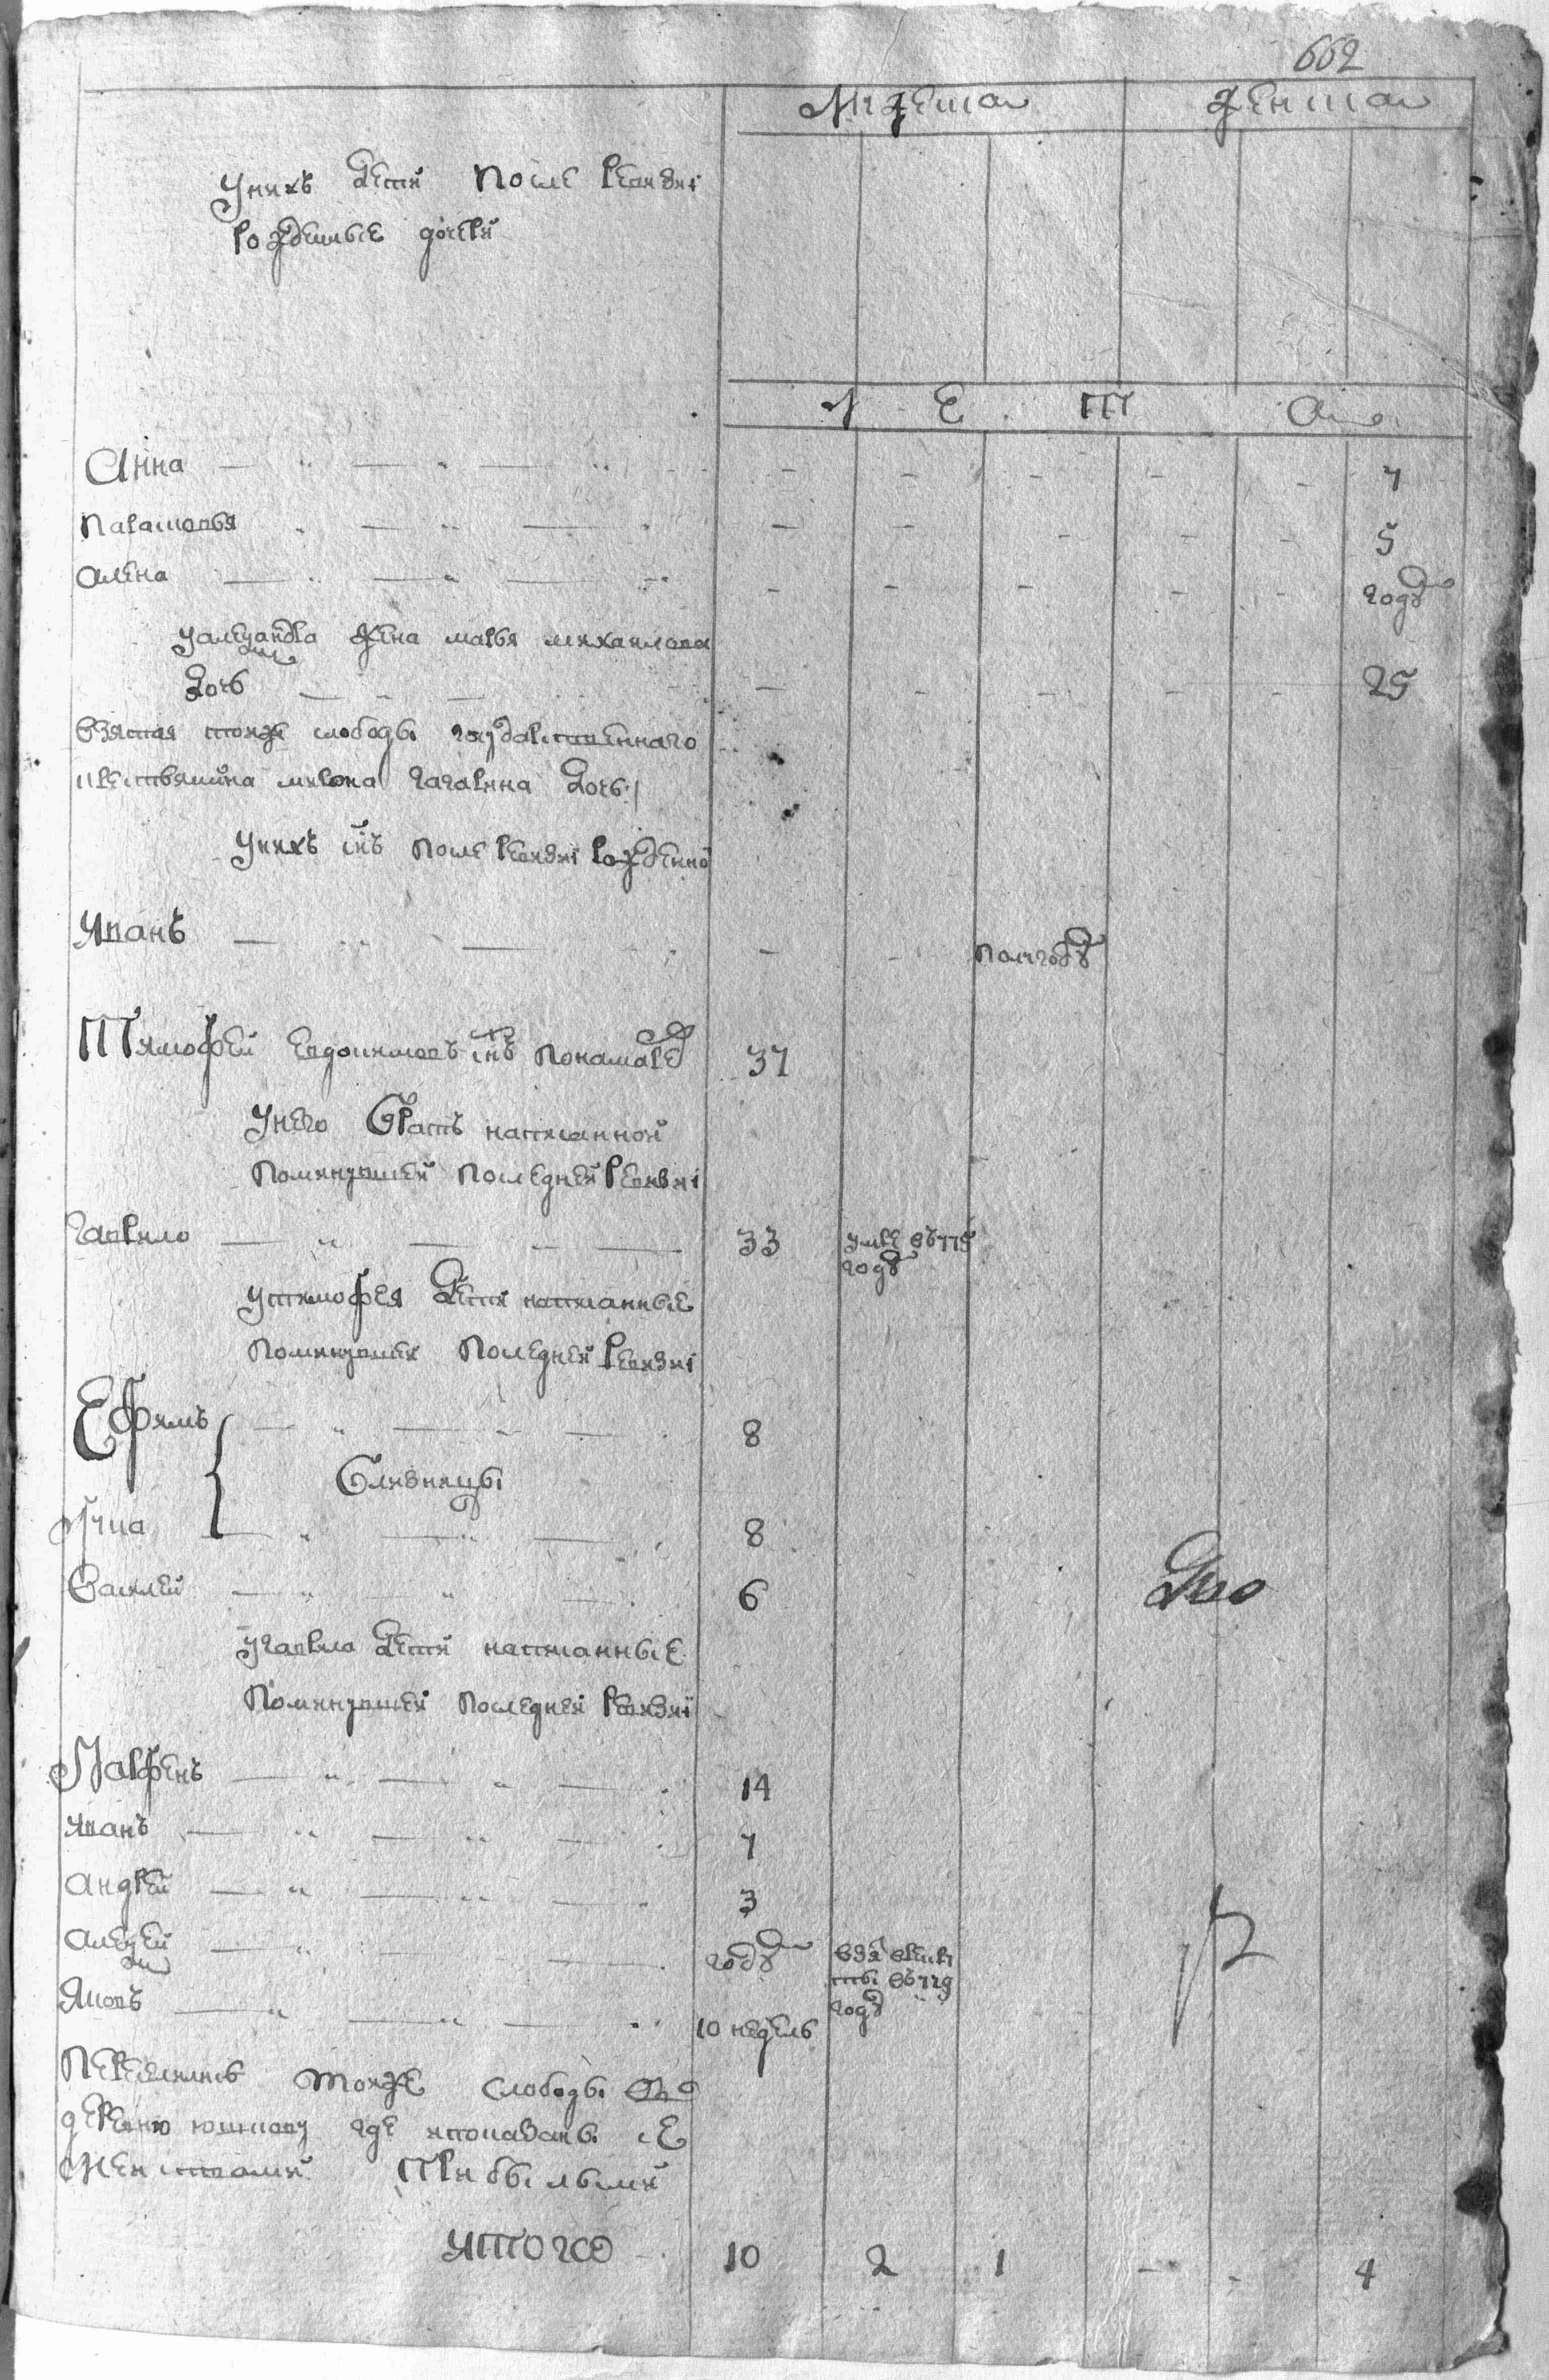 662
Мужеска женска
у нихъ дети после ревизиї
рожденные дочери
Л Е Т А
Анна 7
Парасковья 5
Алена годъ
у александра жена марья михаилова
дочь 25
взятая тоеже слободы государственнаго
крестьянина мирона гагарина дочь
у нихъ снъ после ревизиї рожденной
Иванъ полгода
Тимофей Евдокимовъ снъ понамаре 37
у него братъ написанной
по минувшей последней ревизиї
Гаврило 33 умре въ 775
году
у тимофея дети написанные
по минувшей последней ревизиї
Ефимъ 8
близницы
Лука 8
Василей 6
у гаврила дети написанные
по минувшей последней ревизиї
Парфенъ 14
Иванъ 7
Андрей 3
Алексей годъ взя в рекру
ты въ 779
году
Яковъ 10 недель
Переехались тоеже слободы в
деревню юшкову где и показаны с
женами и прибылыми
Итого 10 2 1 - - 4